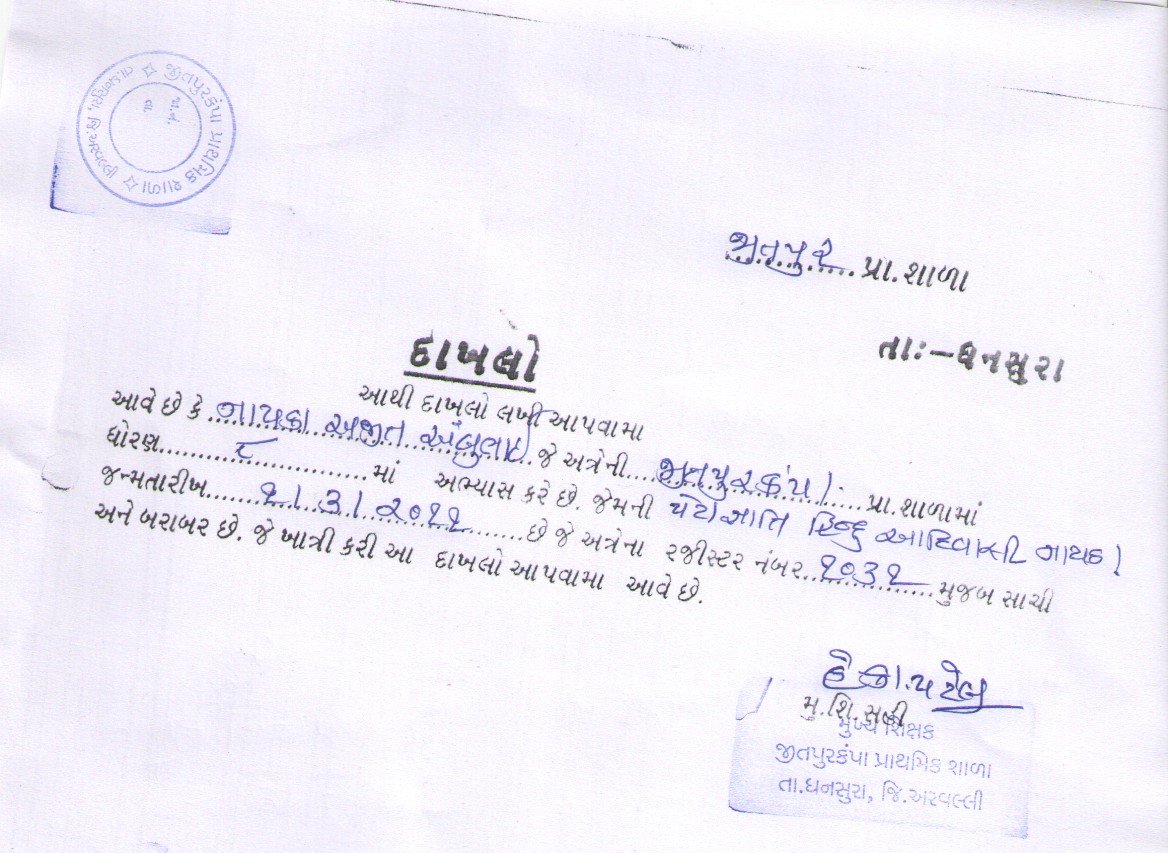 જીતપુરકંપા પ્રાથમિક શાળા
તા.ધનસુરા, જિ.અરવલ્લી
જા.નં.
તા.
જીતપુર પ્રા.શાળા
તા:-ધનસુરા
દાખલો
આથી દાખલો લખી આપવામા
આવે છે કે નાયકા અજીત અંબુલાલ જે અત્રેની જીતપુરકંપા પ્રા.શાળામાં
ધોરણ ૮ માં અભ્યાસ કરે છે. જેમની પેટાજાતિ હિન્દુ આદિવાસી નાયકા
જન્મતારીખ ૧/૩/૨૦૧૧ છે જે અત્રેના રજીસ્ટર નંબર ૧૦૩૧ મુજબ સાચી
અને બરાબર છે. જે ખાત્રી કરી આ દાખલો આપવામા આવે છે.
પટેલ
મુ.શિ.સહી
મુખ્ય શિક્ષક
જીતપુરકંપા પ્રાથમિક શાળા
તા.ધનસુરા, જિ.અરવલ્લી